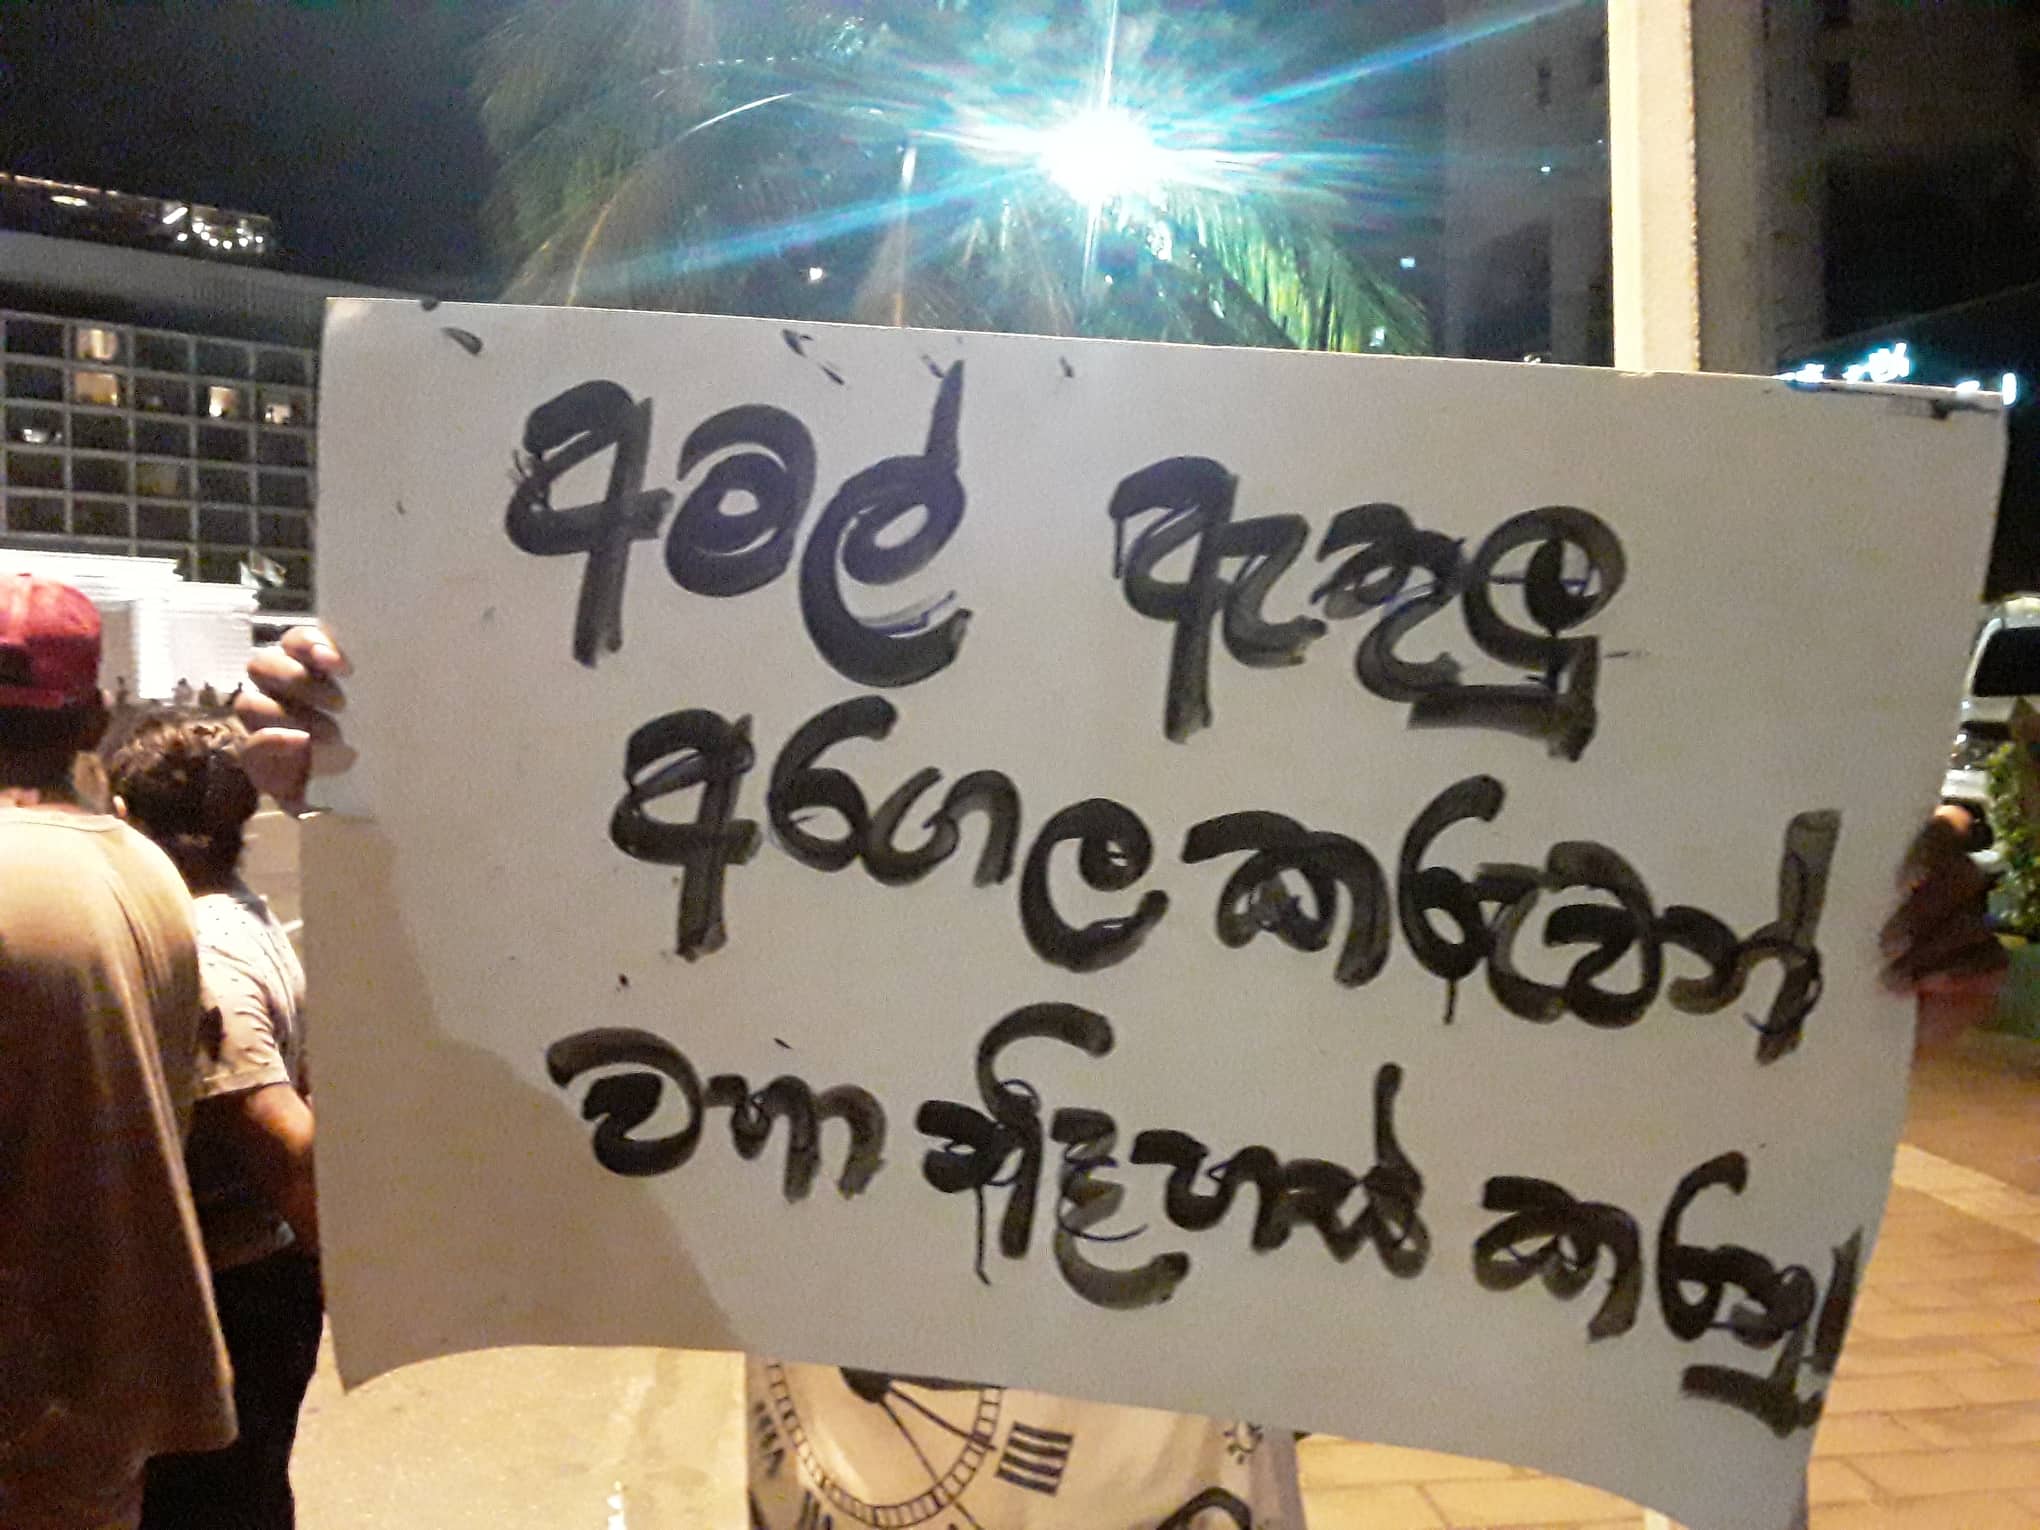 අමල් ඇතුලු
අරගලකරුවන්
වහා නිදහස් කරනු!